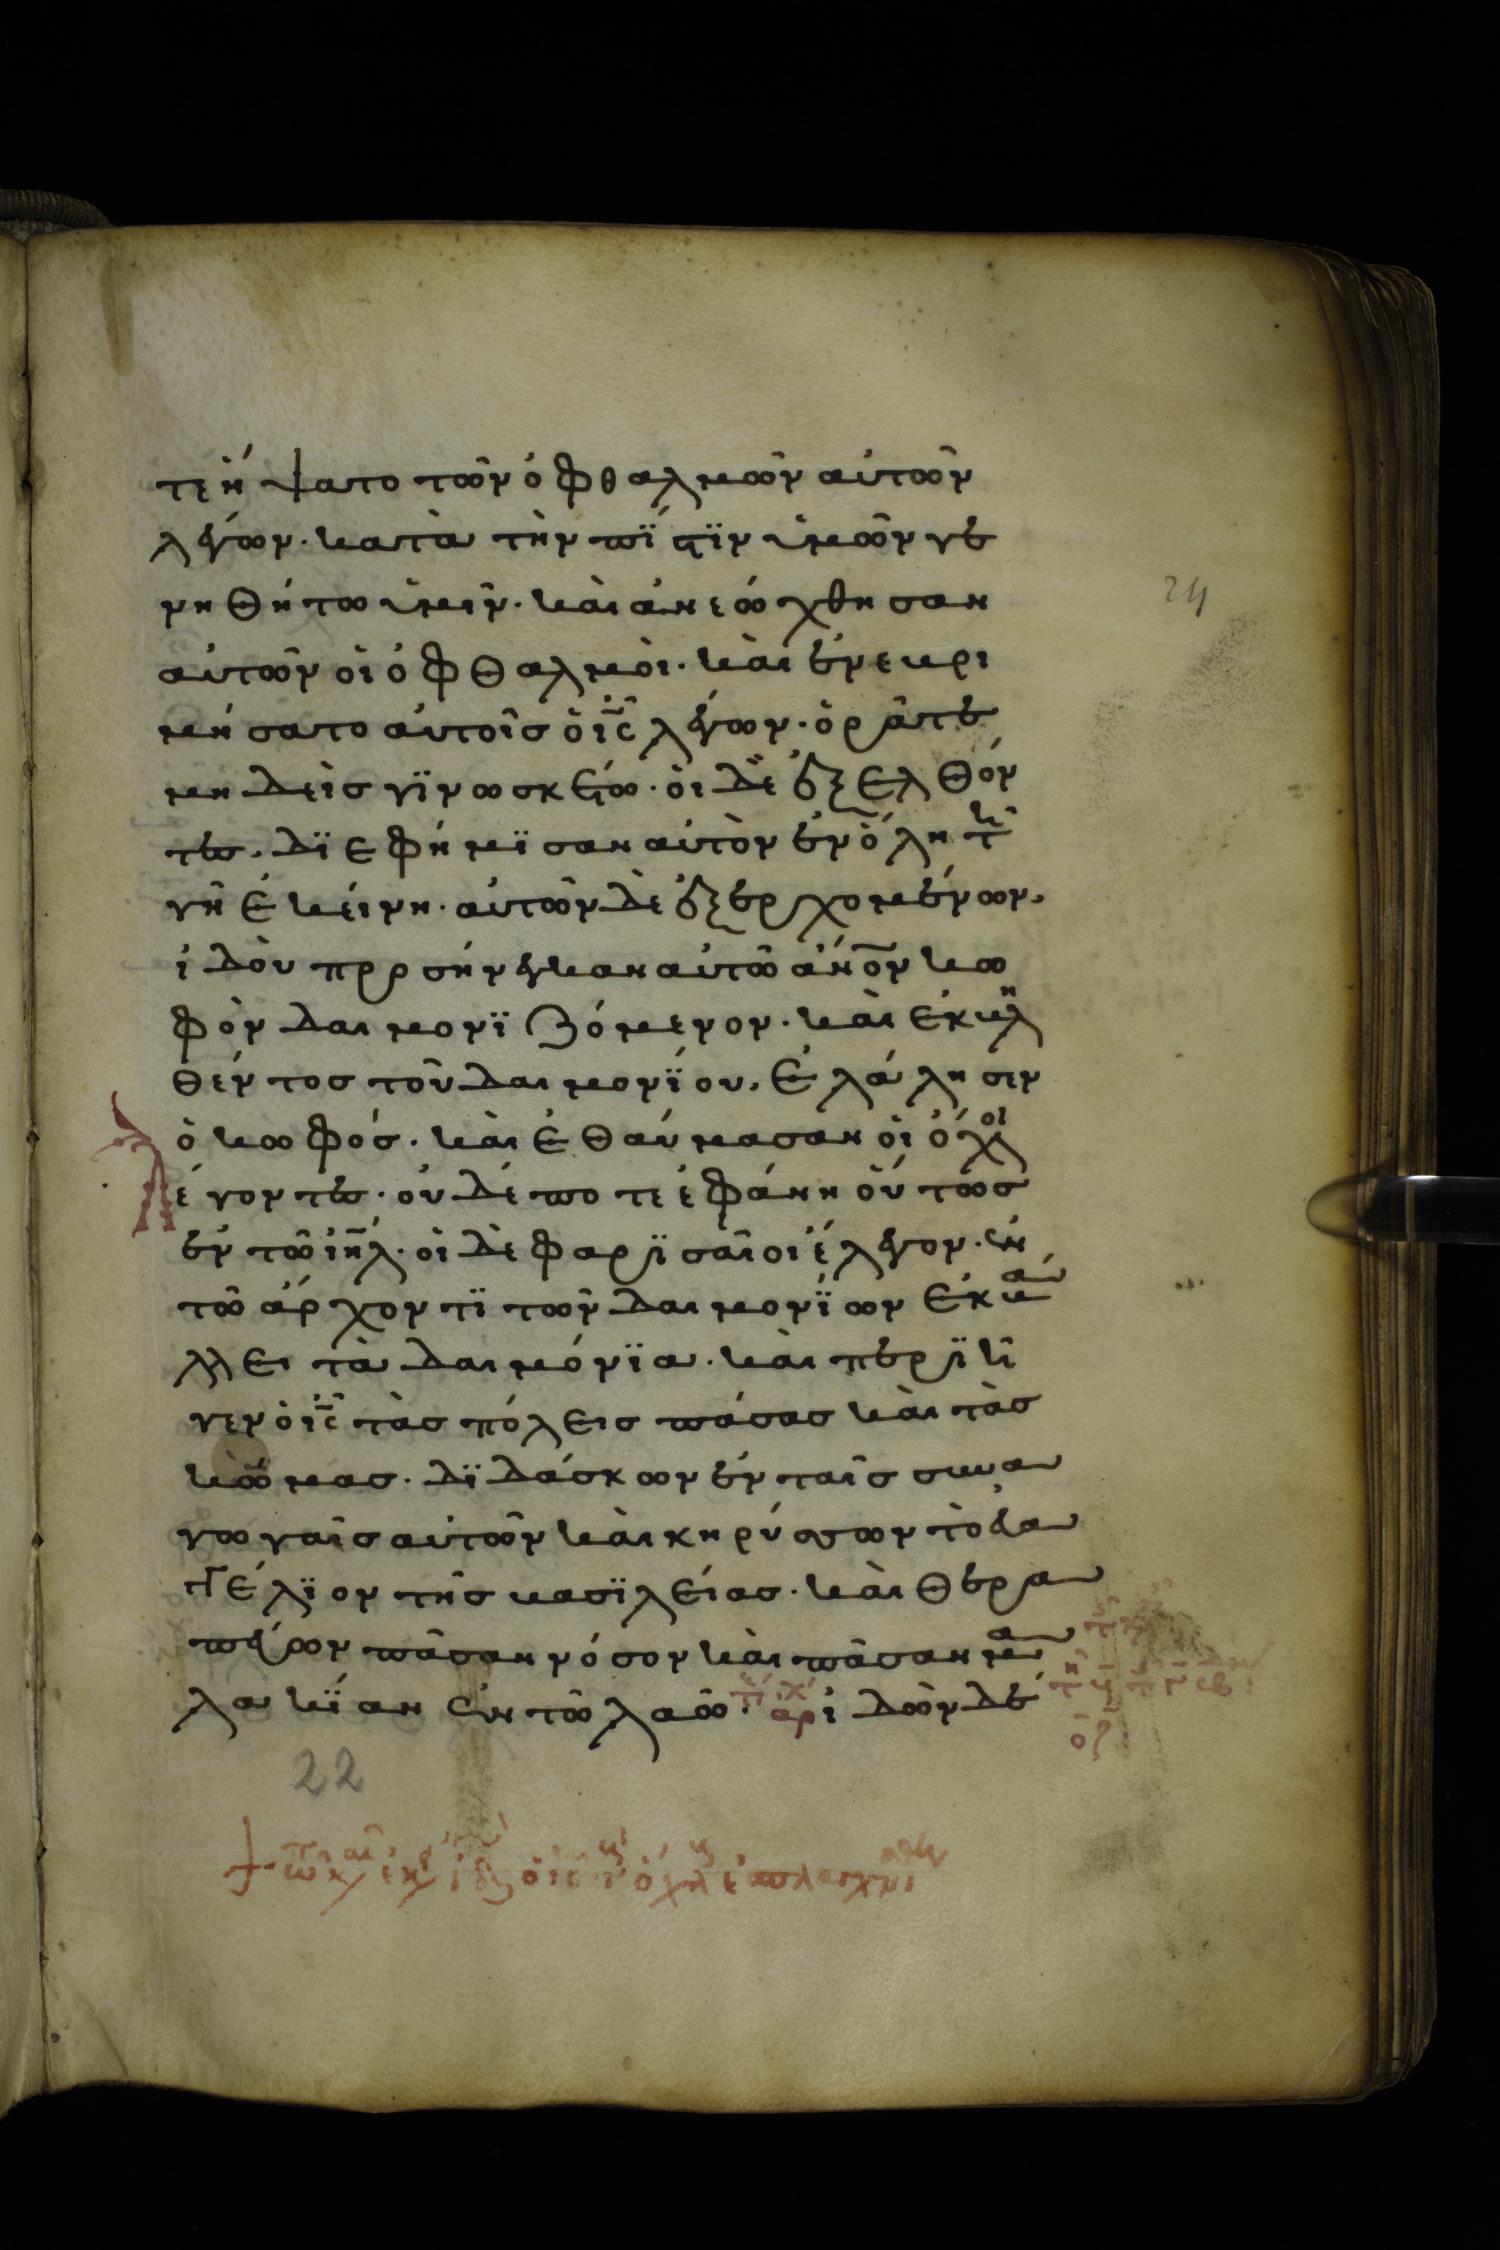 τε ἥψατο τῶν ὀφθαλμῶν αὐτῶν
λέγων· κατὰ τὴν πίστιν ὑμῶν γε
νηθήτω ὑμῖν· καὶ ἀνεώχθησαν
αὐτῶν οἱ ὀφθαλμοὶ· καὶ ἐνεβρι
μήσατο αὐτοῖς ὁ ι̅ς̅ λέγων· ὁρᾶτε
μηδεὶς γϊνωσκέτω· οἱ δὲ ἐξελθόν
τες, δϊεφήμϊσαν αὐτὸν ἐν ὅλη τῆ
γῆ ἐκείνη· αὐτῶν δὲ ἐξερχομένων,
ἰδοὺ προσήνεγκαν αὐτῶ ἄν̅ο̅ν κω
φὸν δαιμονϊζόμενον· καὶ ἐκβλη
θέντος τοῦ δαιμονΐου, ἐλάλησεν
ὁ κωφός· καὶ ἐθαύμασαν οἱ ὄχλοι
Λέγοντες· οὐδέποτε ἐφάνη οὕτως
ἐν τῶ ι̅η̅λ̅· οἱ δὲ φαρϊσαῖοι ἔλεγον· ἐν
τῶ ἄρχοντϊ τῶν δαιμονΐων ἐκβά
λλει τὰ δαιμόνϊα· καὶ περϊῆ
γεν ὁ ι̅ς̅ τὰς πόλεις πάσας καὶ τὰς
κώμας· δϊδάσκων ἐν ταῖς συνα
γωγαῖς αὐτῶν καὶ κηρύσσων τὸ εὐα
γγέλϊον τῆς βασϊλείας· καὶ θερα
πεύων πᾶσαν νόσον καὶ πᾶσαν μα
λακΐαν ἐν τῶ λαῶ· αρ ἰδὼν δὲ
24
οζ
22